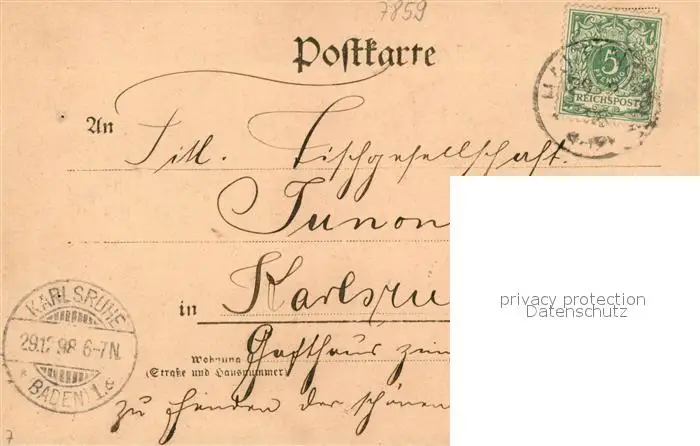 7859
Postkarte
5
PFENNIG
REICHSPOST
An
Titl. Tischgesellschaft.
Karlsru
in
privacy protection
Datenschutz
KARLSRUHE
29.12.98 6-7N.
(BADEN) 1.
Wohnung
(Straße und Hausnummer)
Gasthaus zum
zu
der schönen
7